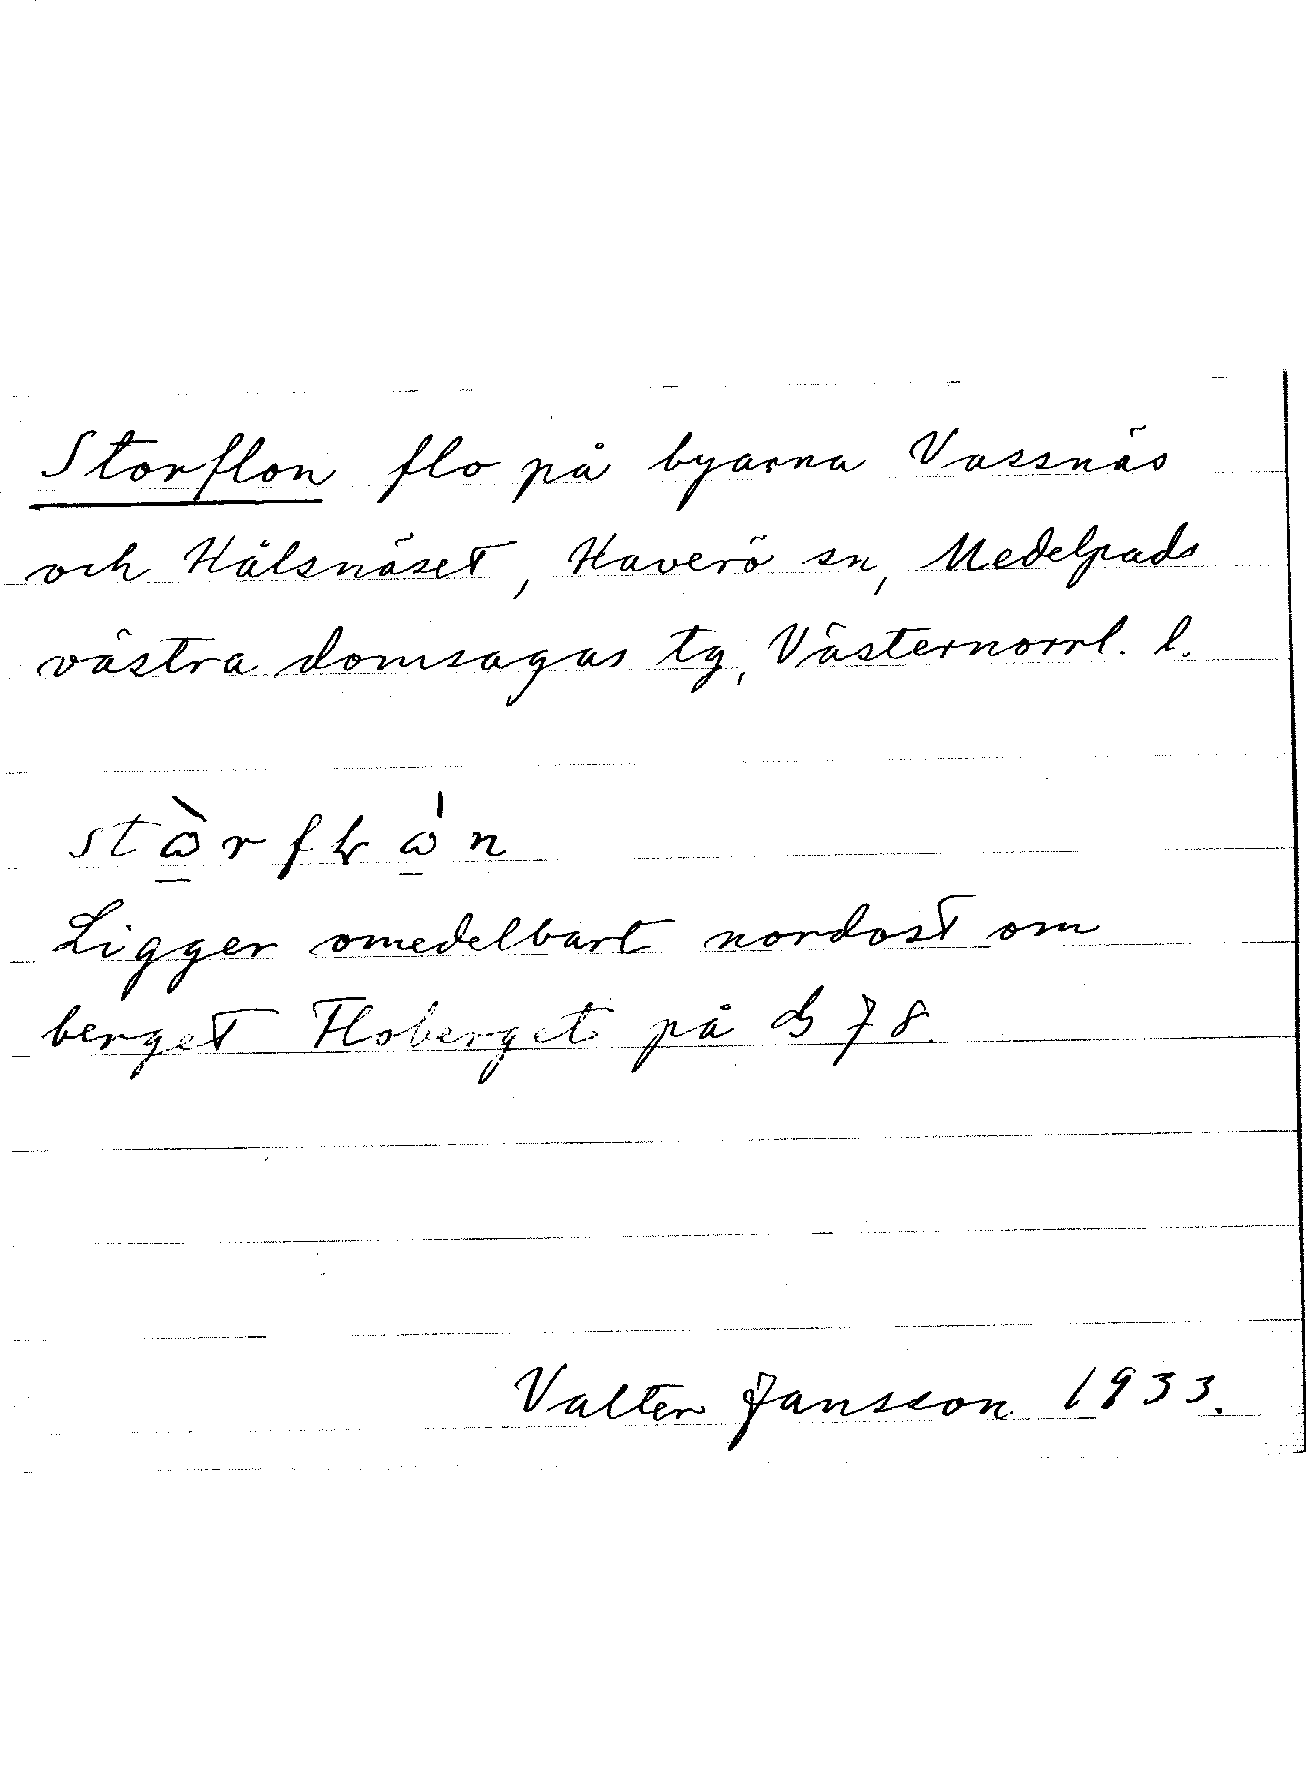 Storflon flo på byarna Vassnäs
och Hålsnäset, Haverö sn, Medelpads
västra domsagas tg, Västernorrl. l.
Ligger omedelbart nordost om
berget Floberget på 78.
Valter Jansson 1933.